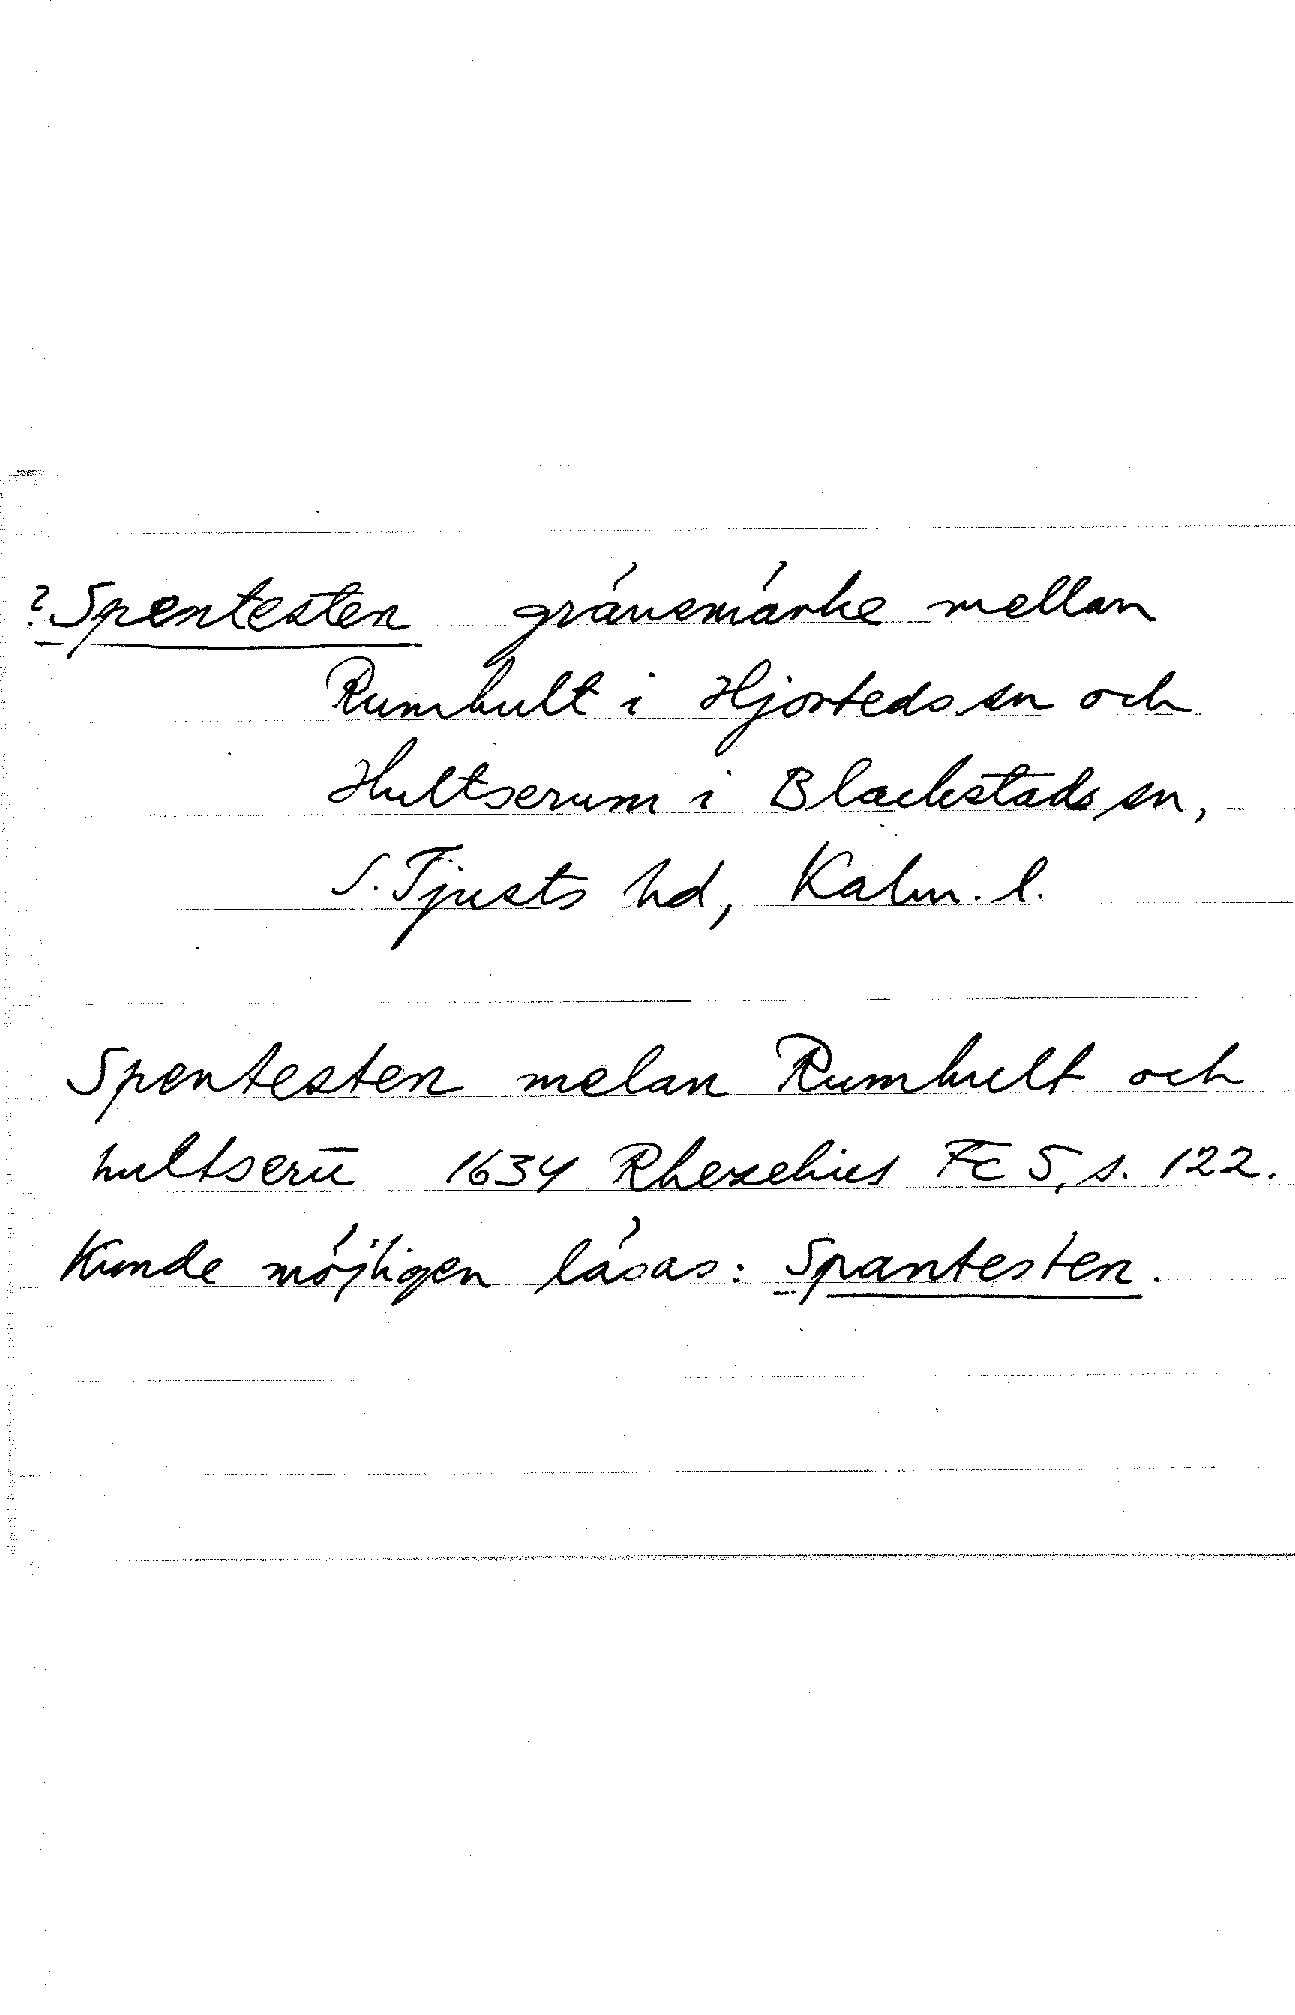 ? Spentesten gränsmärke mellan
Rumhult i Hjorteds sn och
Hultserum i Blackstads sn,
S. Tjusts hd, Kalm. l.
Spentesten melan Rumhult och
hultserū 1634 Rhezelius Fc 5, s. 122.
Kunde möjligen läsas: Spantesten.